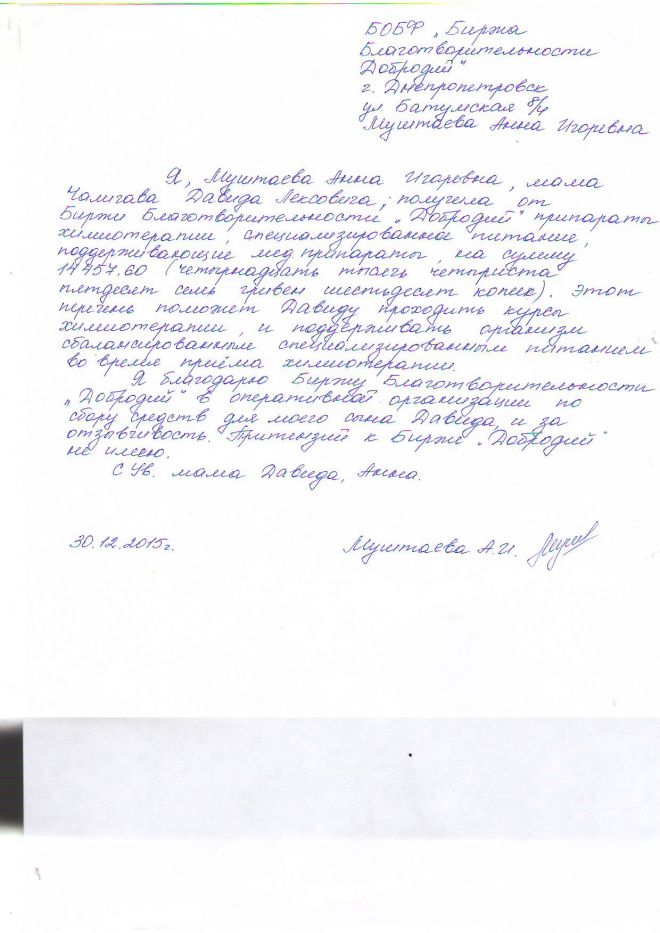 БОБФ „Биржа
Благотворительности
Добродий"
г. Днепропетровск
ул Батумская 8/4
Муштаева Анна Игоревна
Я, Муштаева Анна Игоревна, мама
Чамгава Давида Лексовича, получила от
Биржи Благотворительности „Добродий" припараты
химиотерапии, специализированное питание,
поддерживающие мед припараты, на сумму
14457.60 (четырнадцать тысяч четыриста
пятдесят семь гривен шестьдесят копеек). Этот
перечень поможет Давиду проходить курсы
химиотерапии, и поддерживать организм
сбалансированным специализированным питанием
во время приёма химиотерапии.
Я благодарю Биржу Благотворительности
„Добродий" в оперативной организации по
сбору средств для моего сына Давида, и за
отзывчивость. Притензий к Бирже „Добродий"
не имею.
С Ув. мама Давида, Анна.
30.12.2015г.
Муштаева А.И.